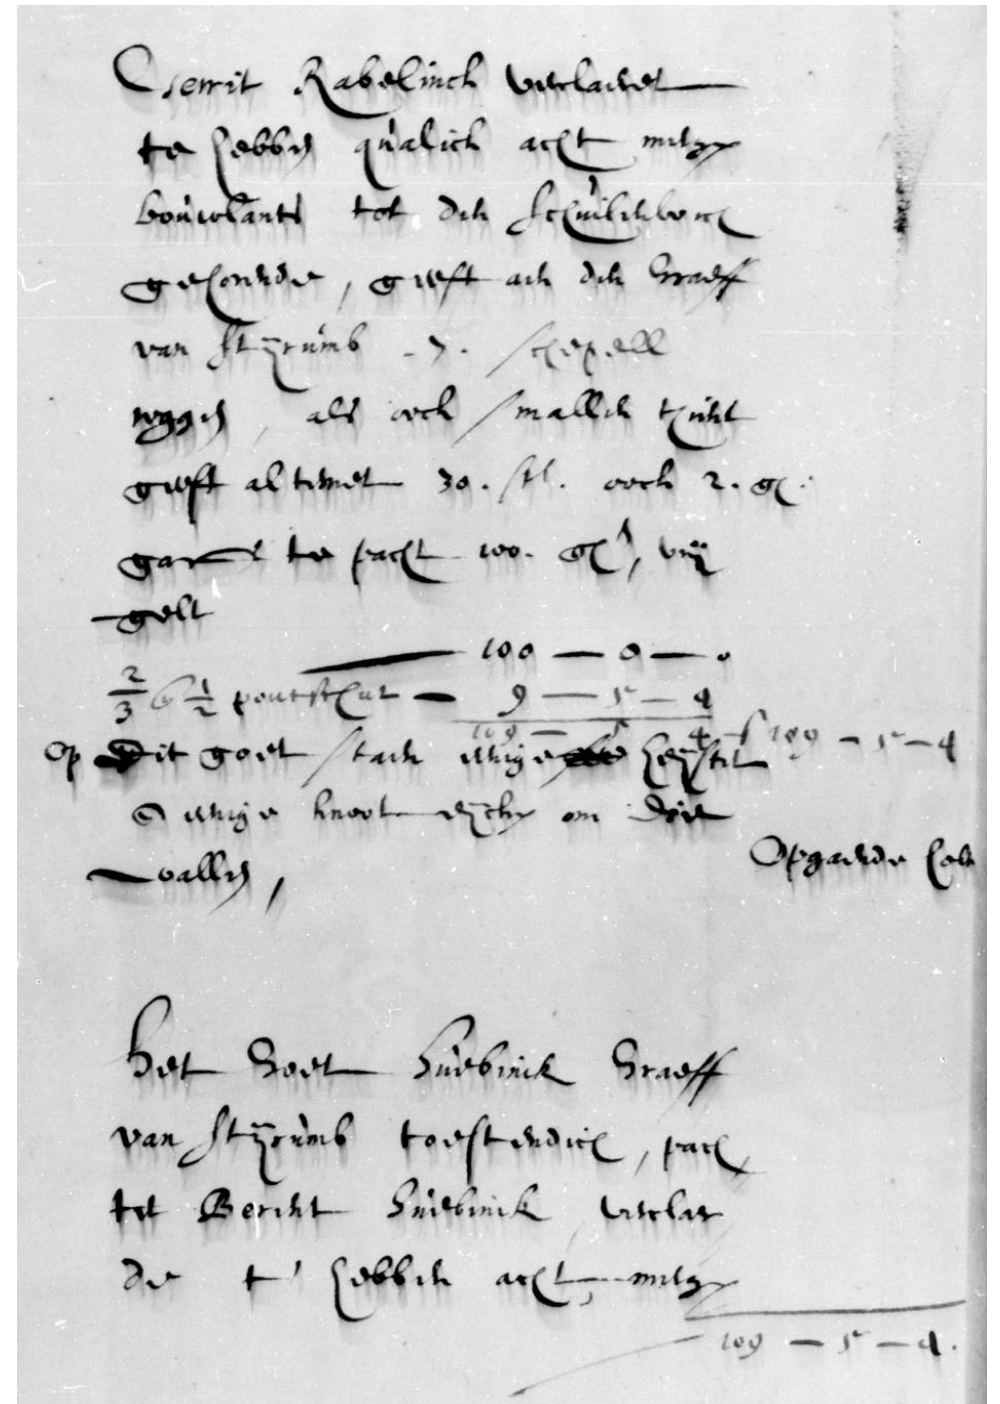 Gerrit Rabelinck verclaeret
te hebben qualick acht mergen
bouwlants tot den schuilenborch
gehorende, gieft aen den Graeff
van Styrumb - 7. schepell
roggen, als oock smallen thint
gieft altemet 30. st. oock 2. gl.
garve te pacht 100. gl, vrij
gelt
100 — 0 — 0
2/3 1/2 pontschat — 9 — 5 — 4
109 — 5 — 4 109 — 5 — 4
Op Dit goet staen enige heesteren
enige knoot eycken om die
wallen,
Opgaende
Het Goet Huebinck Graeff
van Styrumb toestendich, pach
tet Berent Huebinck verclaer
de t' hebben acht mergen
109 — 5 — 4.